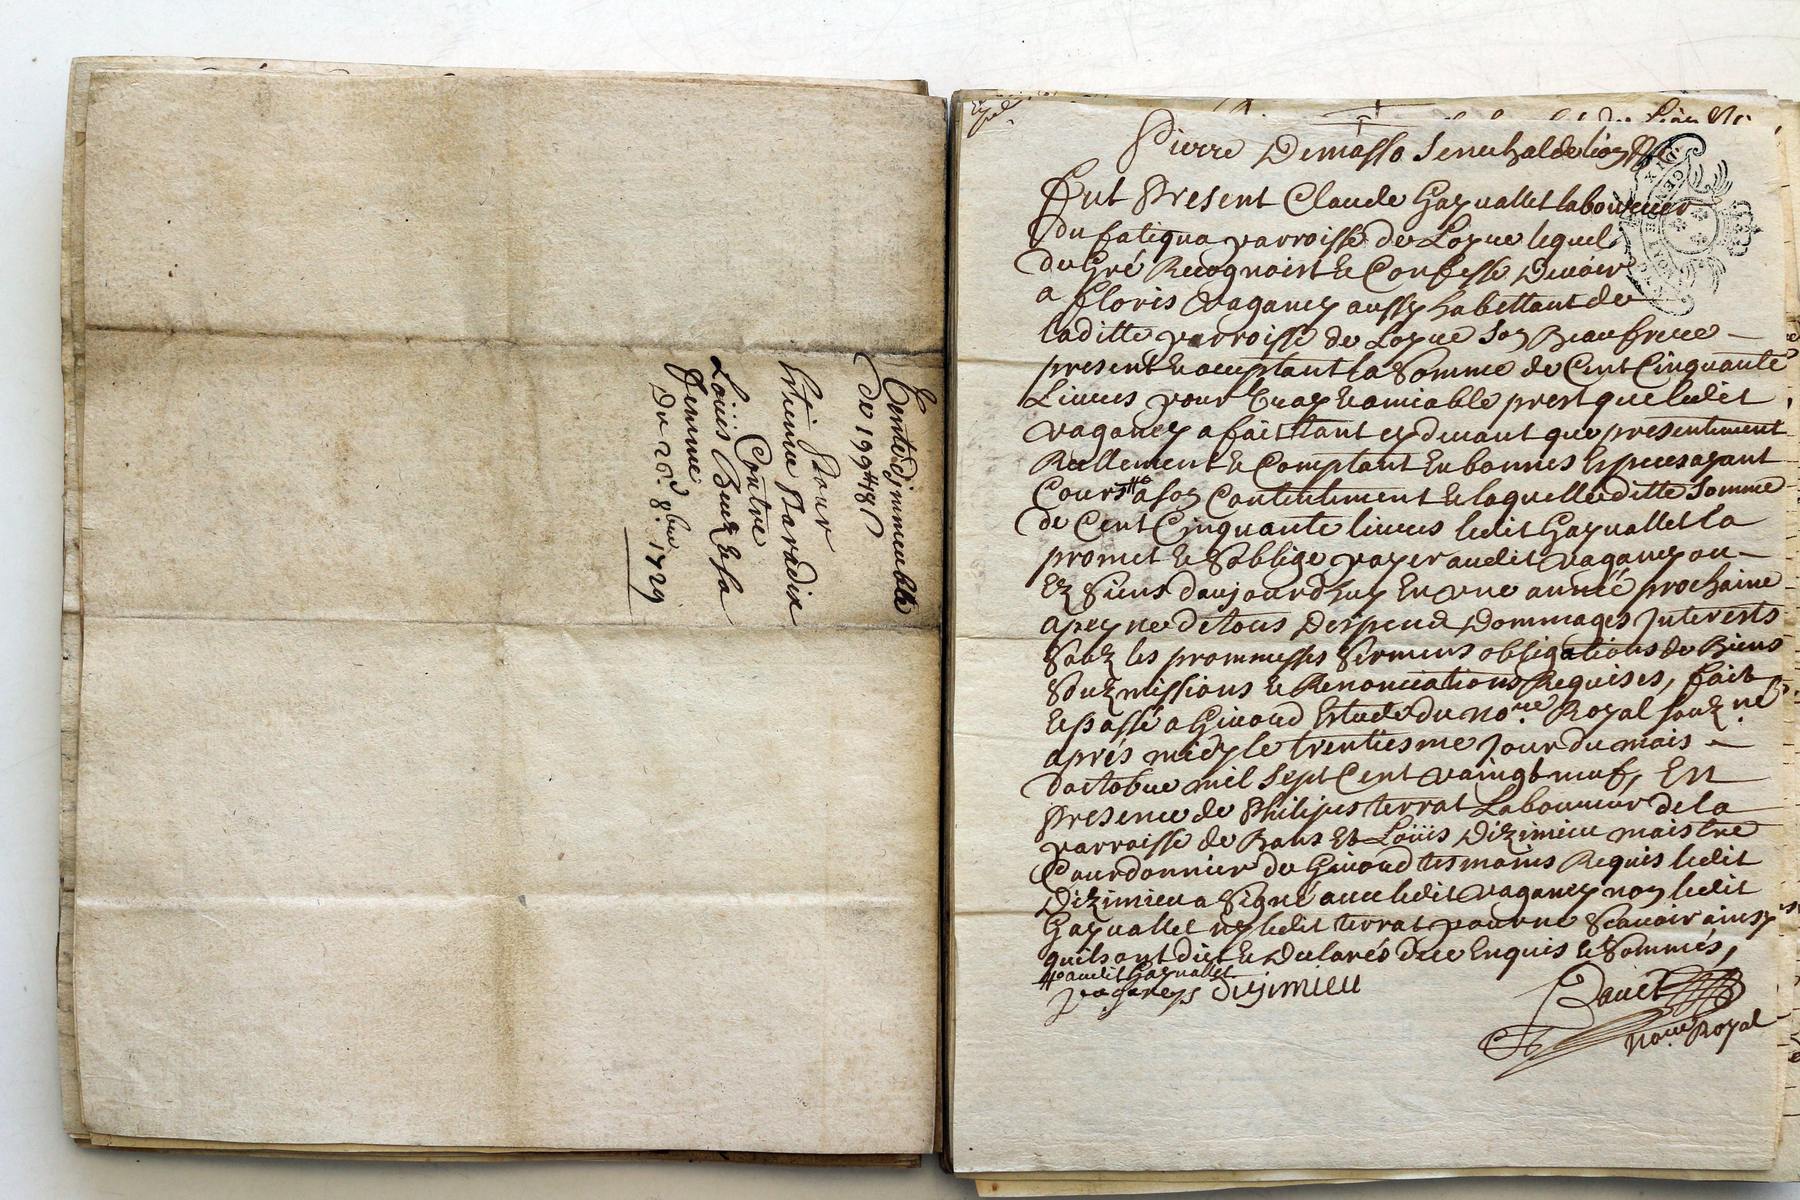 Vente d'jmmeuble
de 199# 18s
pour
Ettienne Paradix
Contre
Loüis Beuz & sa
femme
Du 20.e 8.bre 1729
Pierre Demasso Senechal de lion
Fut Present Claude Gayuallet laboureur
du fatiqua parroisse de Loyre lequel
de Gré Recognoist & Confesse Deuoir
a floris vaganey aussy habettant de
laditte parroisse de Loyre soy Beaufrere
present & aceptant la Somme de Cent Cinquante
Liures pour Vray & amiable prest que ledit
vaganey a fait tant cy deuant que presentement
Reellement & Comptant En bonnes Especes ayant
Cours # a soy Contentement & laquelleditte Somme
de Cent Cinquante liures ledit Gayuallet la
promet & S'oblige payer audit vaganey ou
Ez Siens daujourdhuy En vne année prochaine
apeyne de tous Despend Dommages Interests
Soubz les prommesses Sermens obligations de Biens
Soubzmissions & Renonciations Requises, fait
& passé a Giuord Estude du no.re Royal soubz.né
aprés midy le trentiesme Jour du mois
doctobre mil Sept Cent vaingt neuf, En
Presence de Philipes terrat Laboureur de la
parroisse de Bans Et Loüis Dizimieu maistre
Courdonnier de Giuord tesmoins Requis ledit
Dizimieu a Signé auec ledit vaganey noy ledit
Gayuallet ny ledit terrat pour ne Scauoir ainsy
quils ont dict & Declarés Dece Enquis & Sommés,
# audit Gayuallet
vaganey dizimieu
no.re Royal